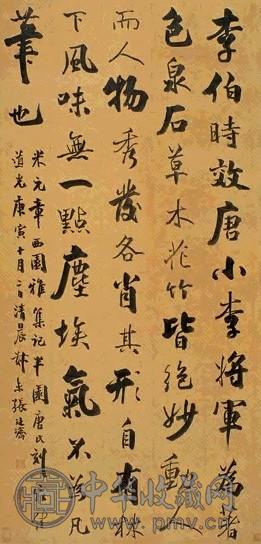 李伯時效唐小李將軍為著
色泉石草木花竹皆絕妙動人
而人物秀發各肖其形自有林
下風味無一點塵埃氣不為凡
筆也
米元章西園雅集記半園唐氏刻
道光庚寅十月二日清晨叔未張廷濟
中华收藏网
www.pmv.cn